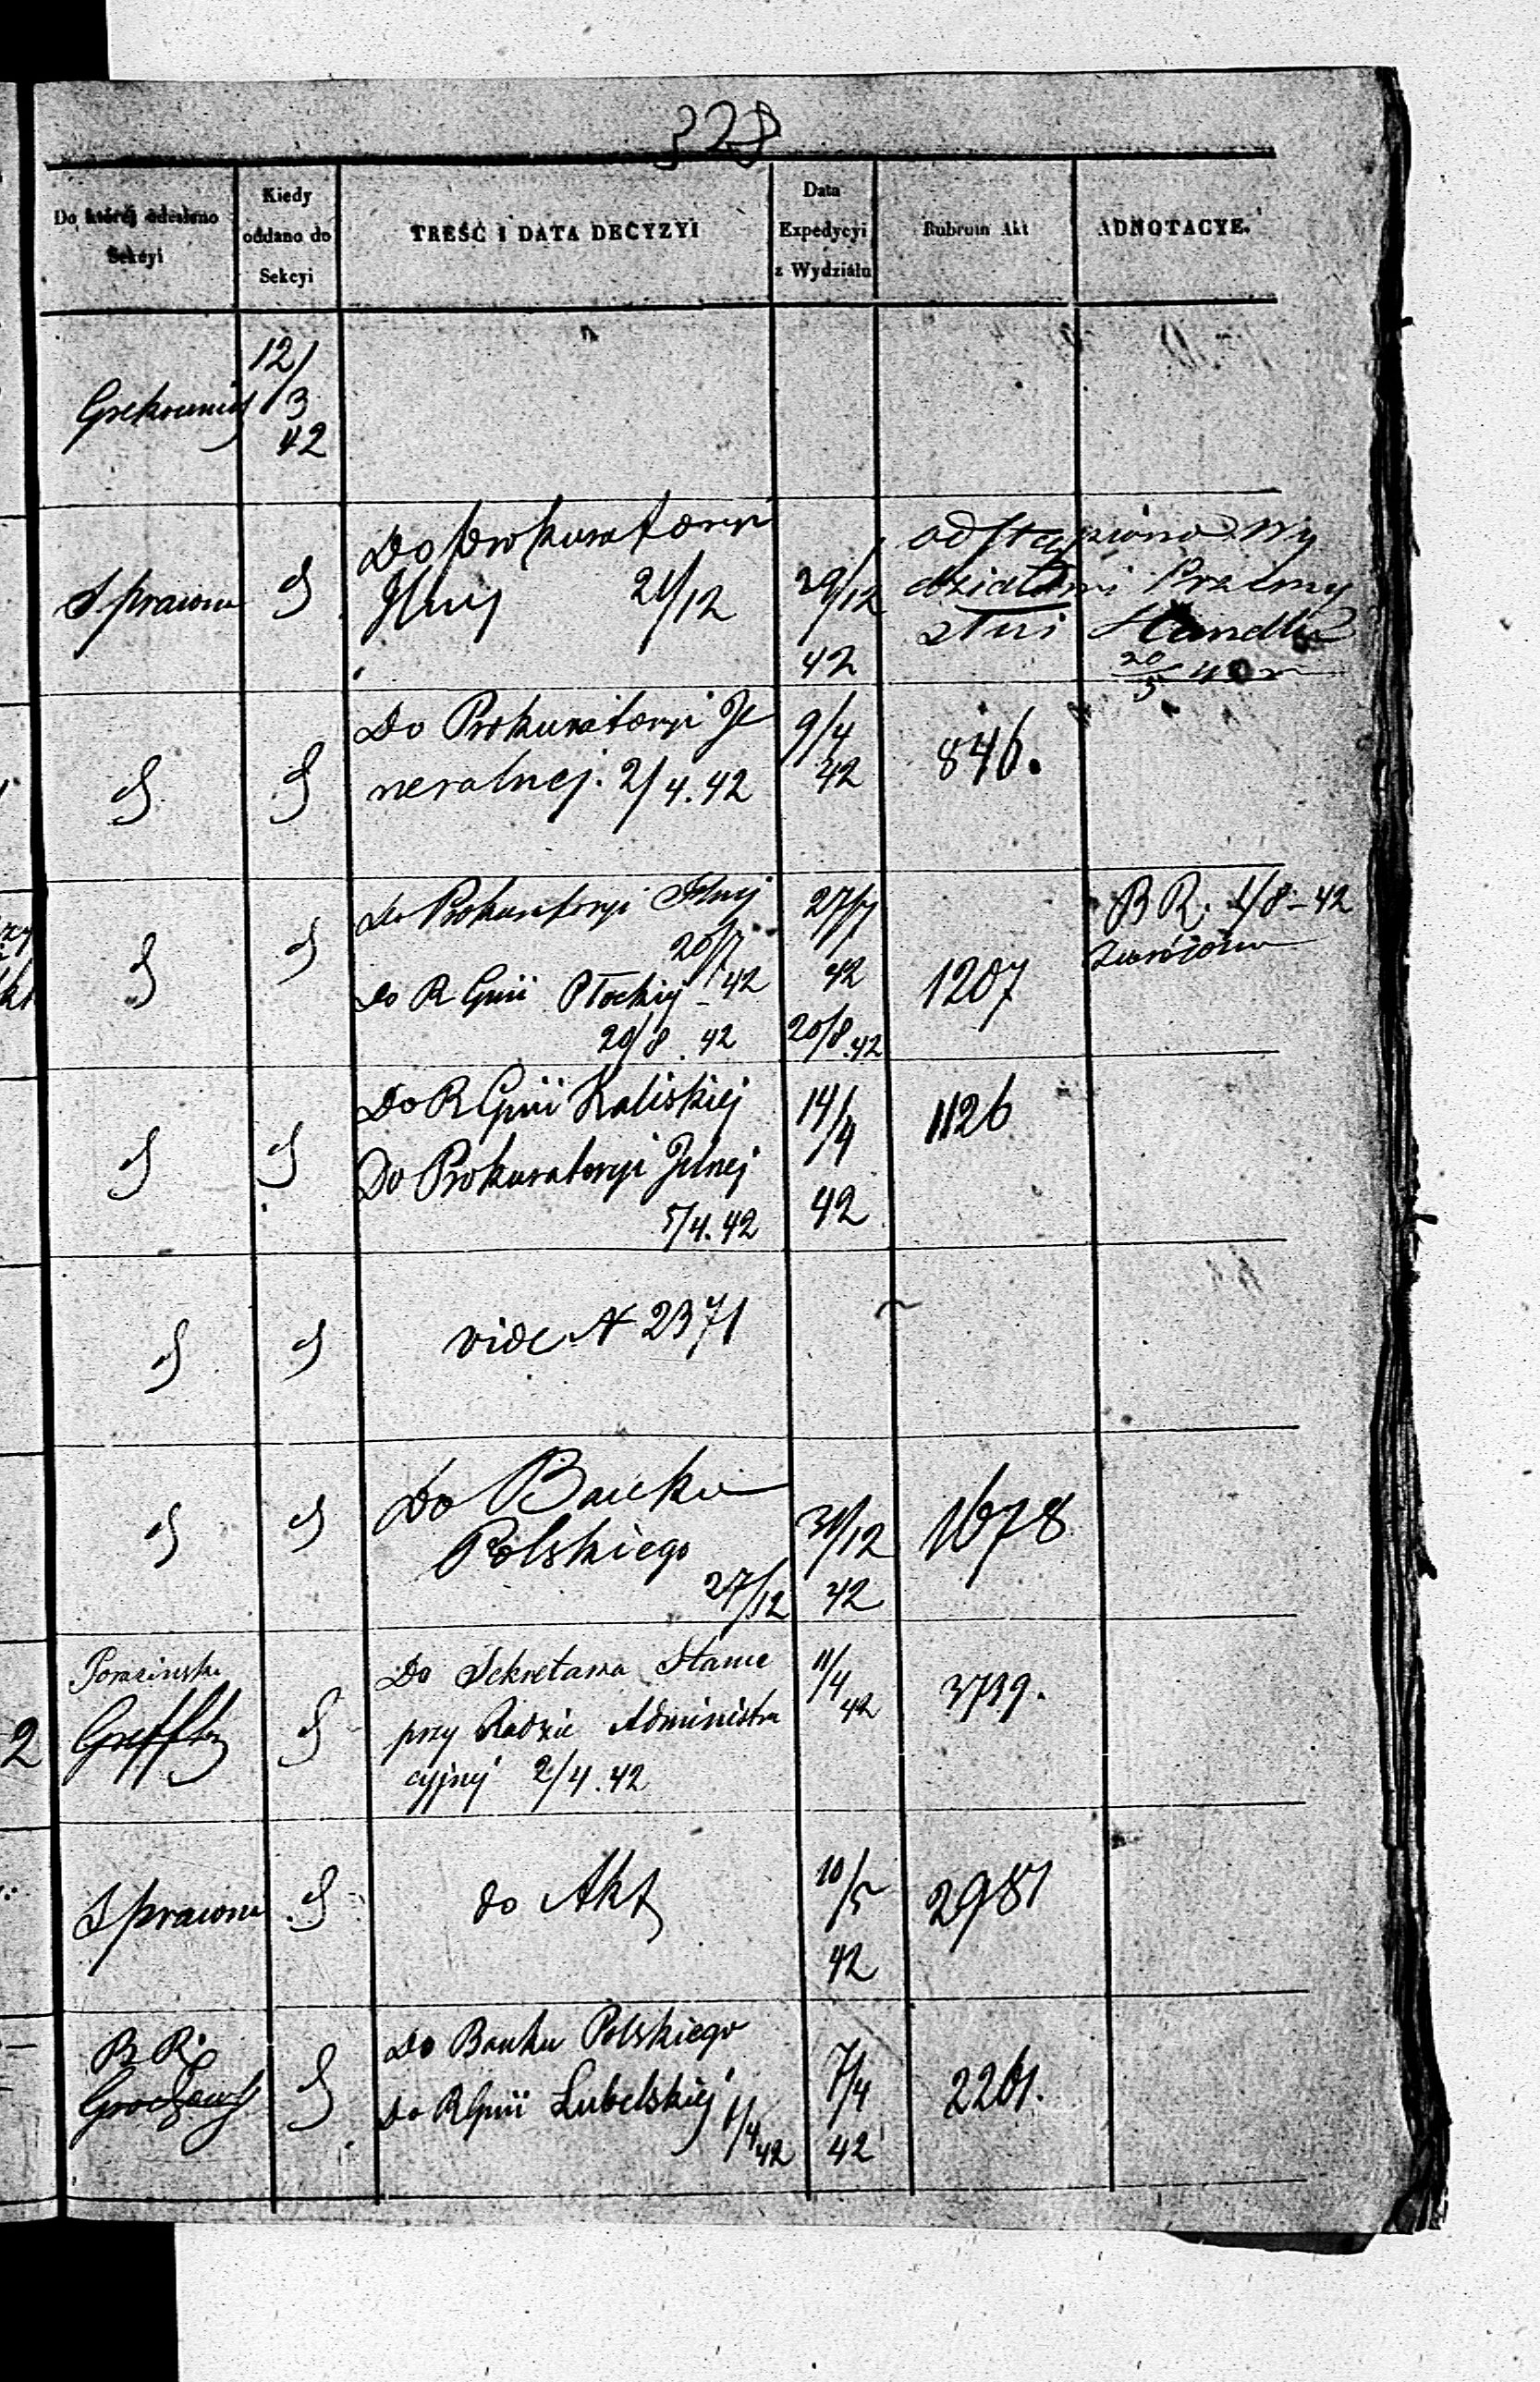 328
Do której odesłano Sekcyi
Kiedy oddano do Sekcyi
TREŚĆ I DATA DECYZYI
Data Expedycyi z Wydziału
Rubrum Akt
ADNOTACYE.
12/
3
42
Do Prokuratoryi
Jlnej 21/12
29/12
42
odstąpiono Wy
działowi Przemy
słu i Handlu
20/5
Do Prokuratoryi Je
neralnej. 2/4.42
9/4
42
846.
Do Prokuratoryi Jlnej
20/7
42
Do R Gnii Płockiej
20/8. 42
27/7
42
20/8.42
1207
B R. 4/8-42
zwrócono
Do R Gnii Kaliskiej
Do Prokuratoryi Jlnej
5/4.42
14/4
42
1126
vide N 2371
Do Banku
Polskiego
27/12
31/12
42
1678
Do Sekretarza Stanu
przy Radzie Administra
cyjnej 2/4.42
11/4
42
3739.
S prawna
do Akt
10/5
42
2981
B R.
Do Banku Polskiego
Do R Gnii Lubelskiej
1/4 42
7/4
42
2261.